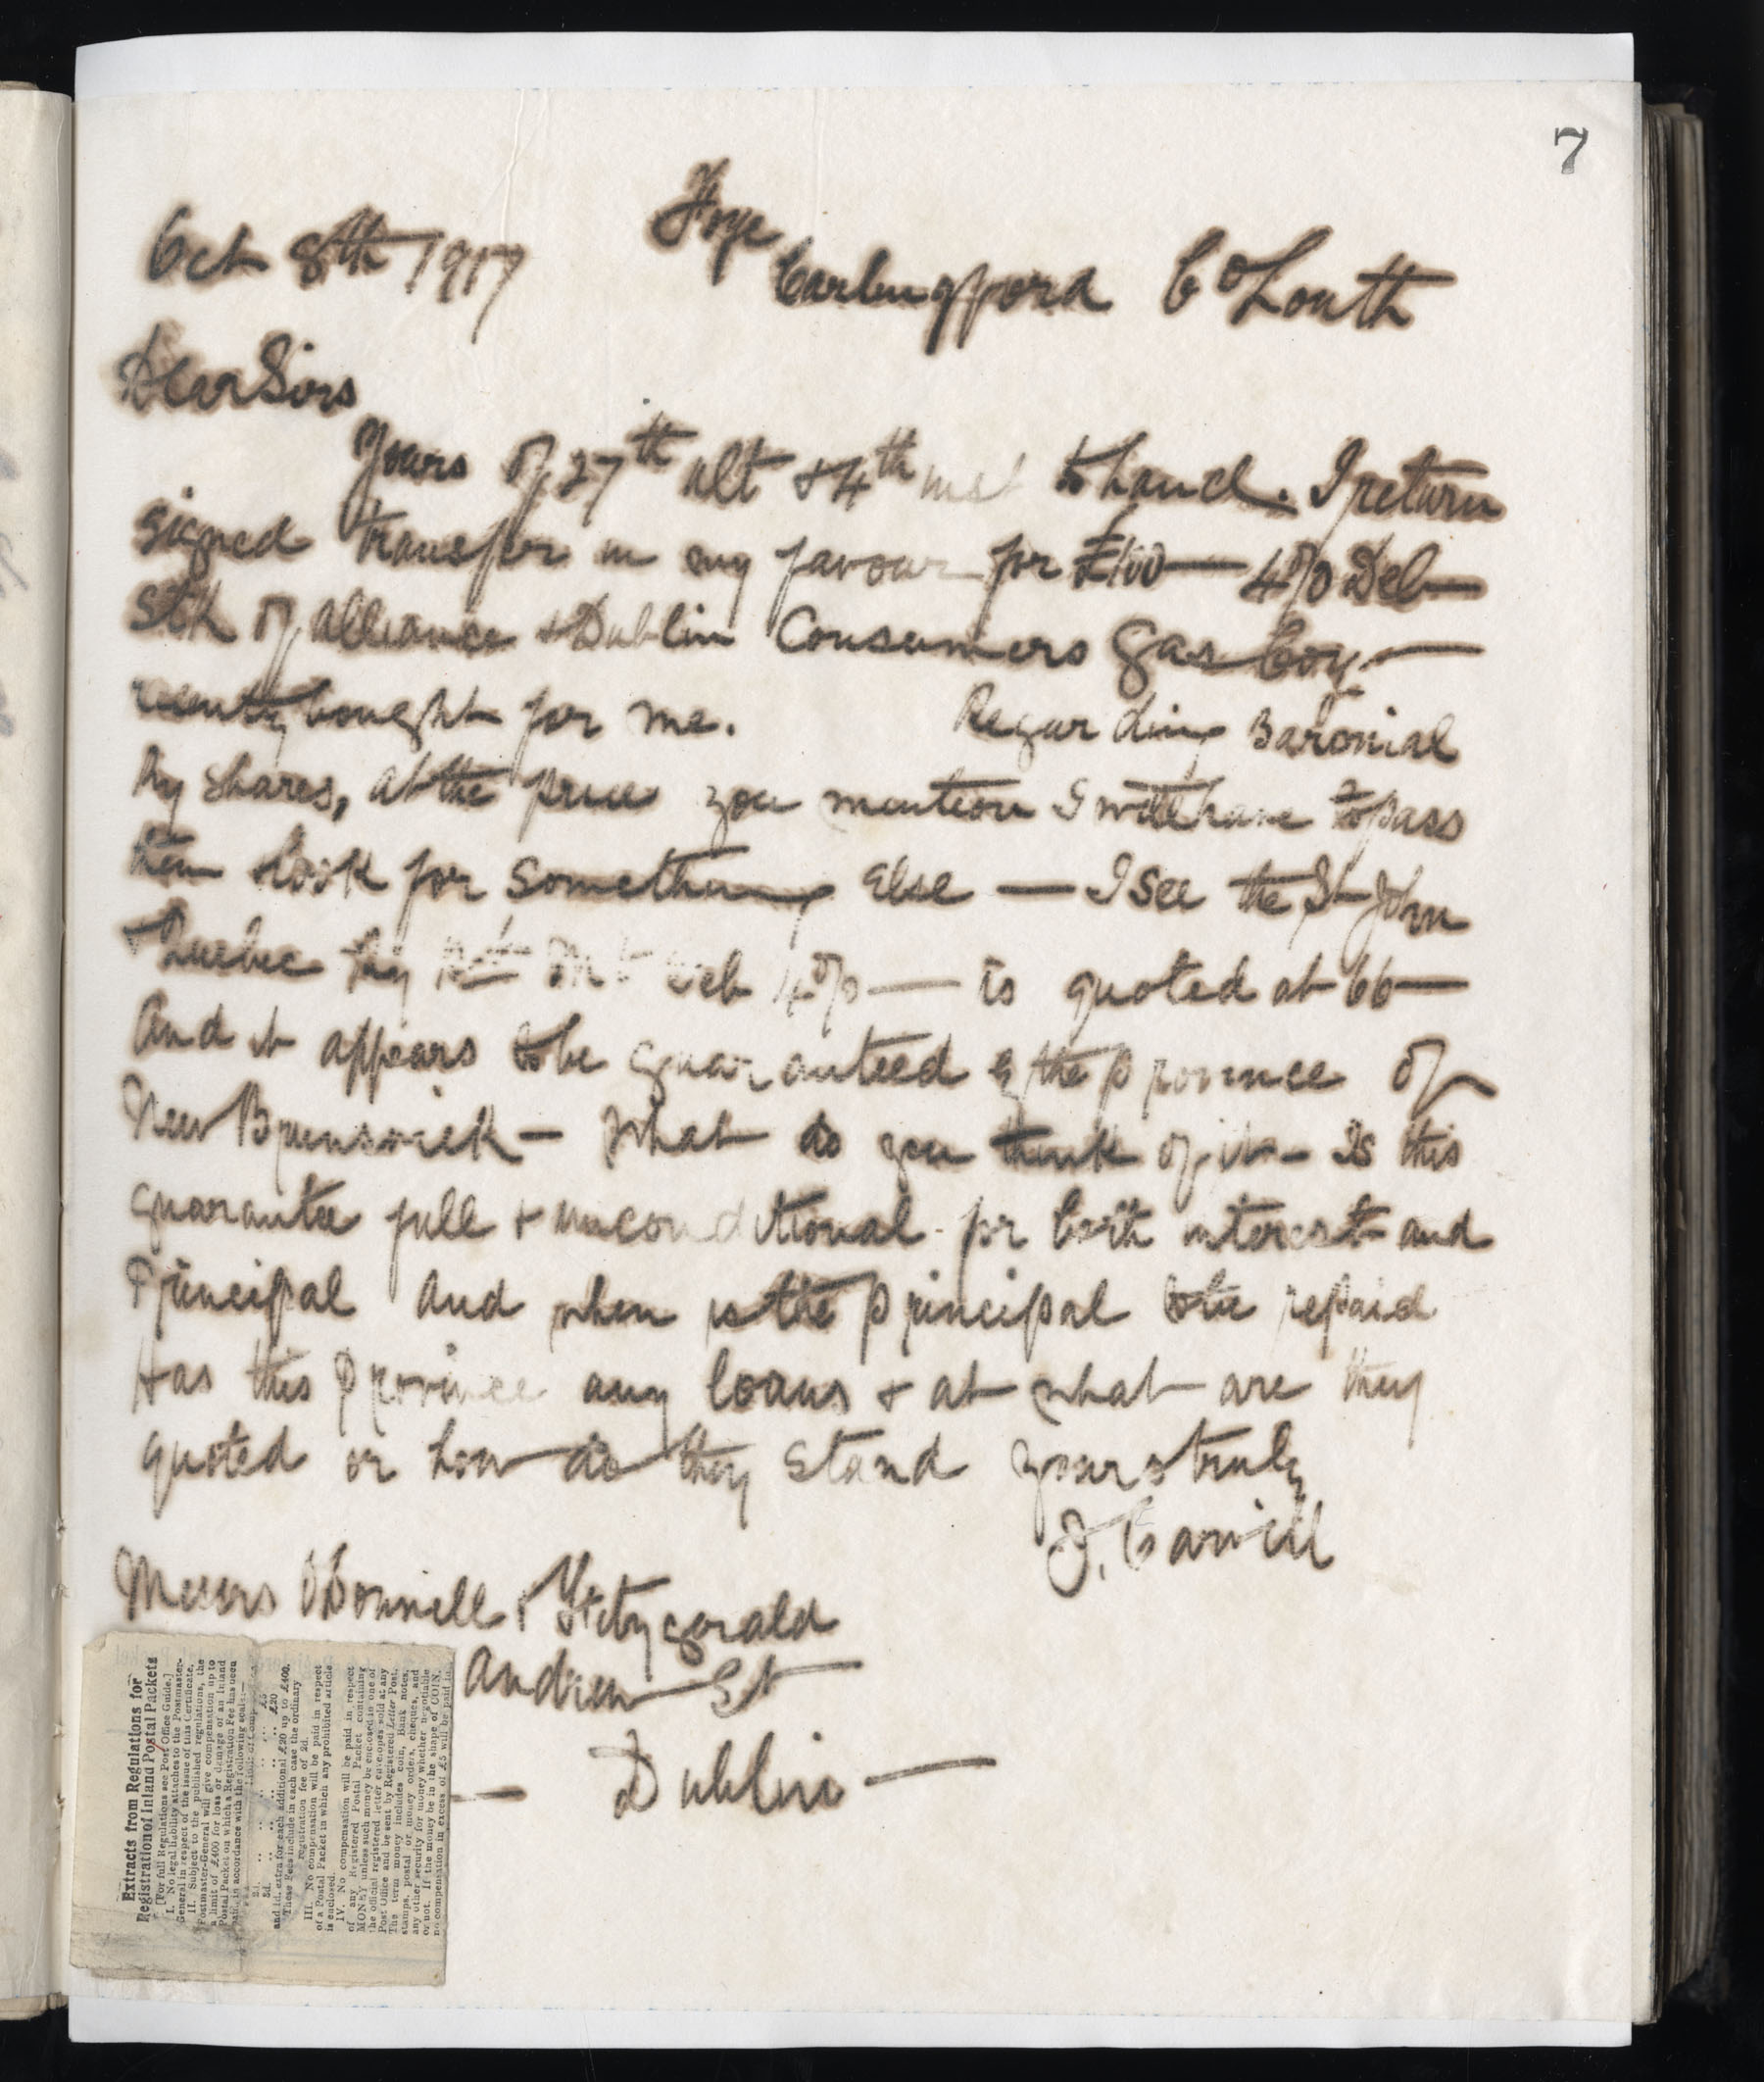 7
Oct 8th 1917 Foye
Carlingford Co Louth
Dear Sirs
Yours of 27th ult & 4th inst to hand. I return
signed transfer in my favour for £100 — 4% Deb
Stk of Alliance & Dublin Consumers Gas Coy —
recently bought for me. Regarding Baronial
Ry Shares, at the price you mention I will have to pass
them & look for something else — I see the St John
& Quebec Rly 1st Mt Deb 4% — is quoted at 66 —
And it appears to be guaranteed by the province of
New Brunswick — What do you think of it — Is this
guarantee full & unconditional for both interest and
Principal And when is the principal to be repaid
Has this province any loans & at what are they
quoted or how do they stand yours truly
J. Carvill
Messrs O'Donnell & Fitzgerald
Andrew St
— Dublin —
Extracts from Regulations for
Registration of Inland Postal Packets
[For full Regulations see Post Office Guide.]
I. No legal liability attaches to the Postmaster-
General in respect of the issue of this Certificate.
II. Subject to the published regulations, the
Postmaster-General will give compensation up to
a limit of £400 for loss or damage of an Inland
Postal Packet on which a Registration Fee has been
paid, in accordance with the following scale:—
Limit of Compensation
2d. .. .. .. £5
3d. .. .. .. £20
and 1d. extra for each additional £20 up to £400.
These Fees include in each case the ordinary
registration fee of 2d.
III. No compensation will be paid in respect
of a Postal Packet in which any prohibited article
is enclosed.
IV. No compensation will be paid in respect
of any Registered Postal Packet containing
MONEY unless such money be enclosed in one of
the official registered letter envelopes sold at any
Post Office and be sent by Registered Letter Post.
The term money includes coin, Bank notes,
stamps, postal or money orders, cheques, and
any other security for money whether negotiable
or not. If the money be in the shape of COIN,
no compensation in excess of £5 will be paid in